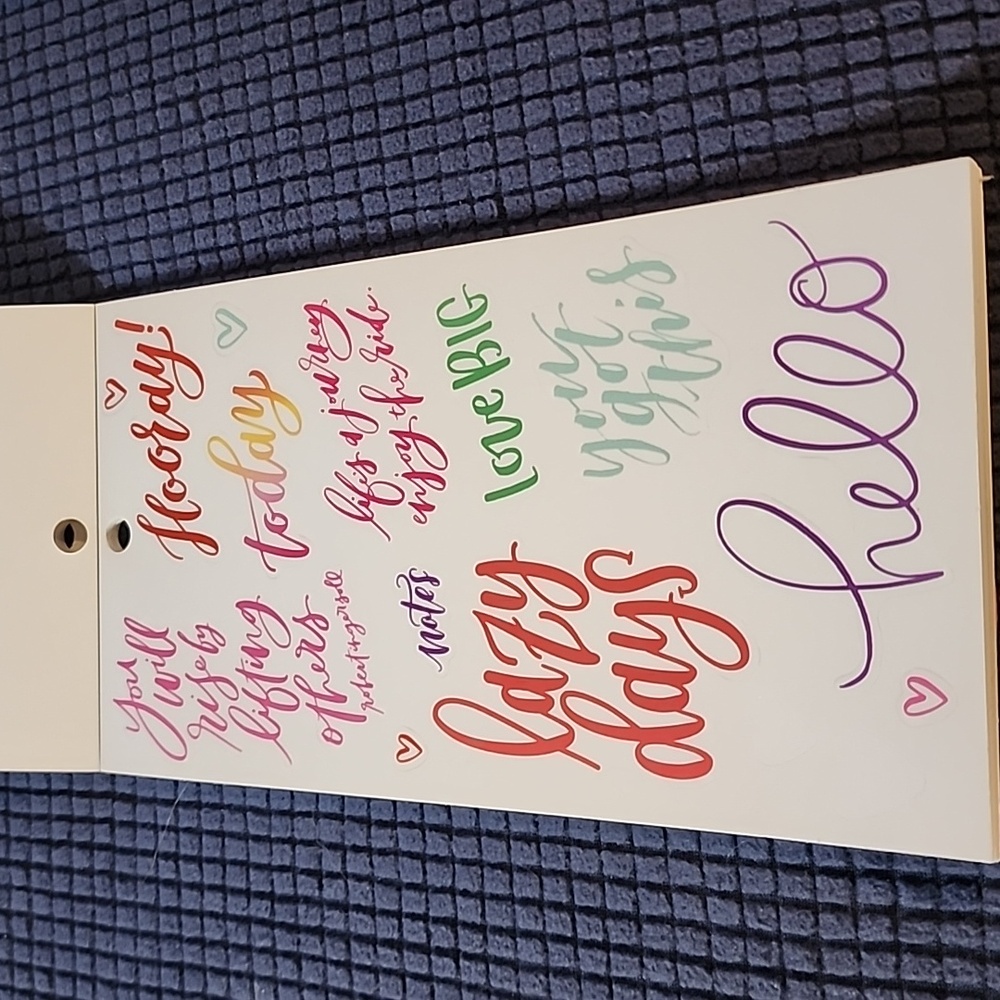 you
will
rise by
lifting
others
robert ingersoll
Hooray!
today
life's a journey
enjoy the ride.
notes
love BIG
lazy
days
you
got
this
hello